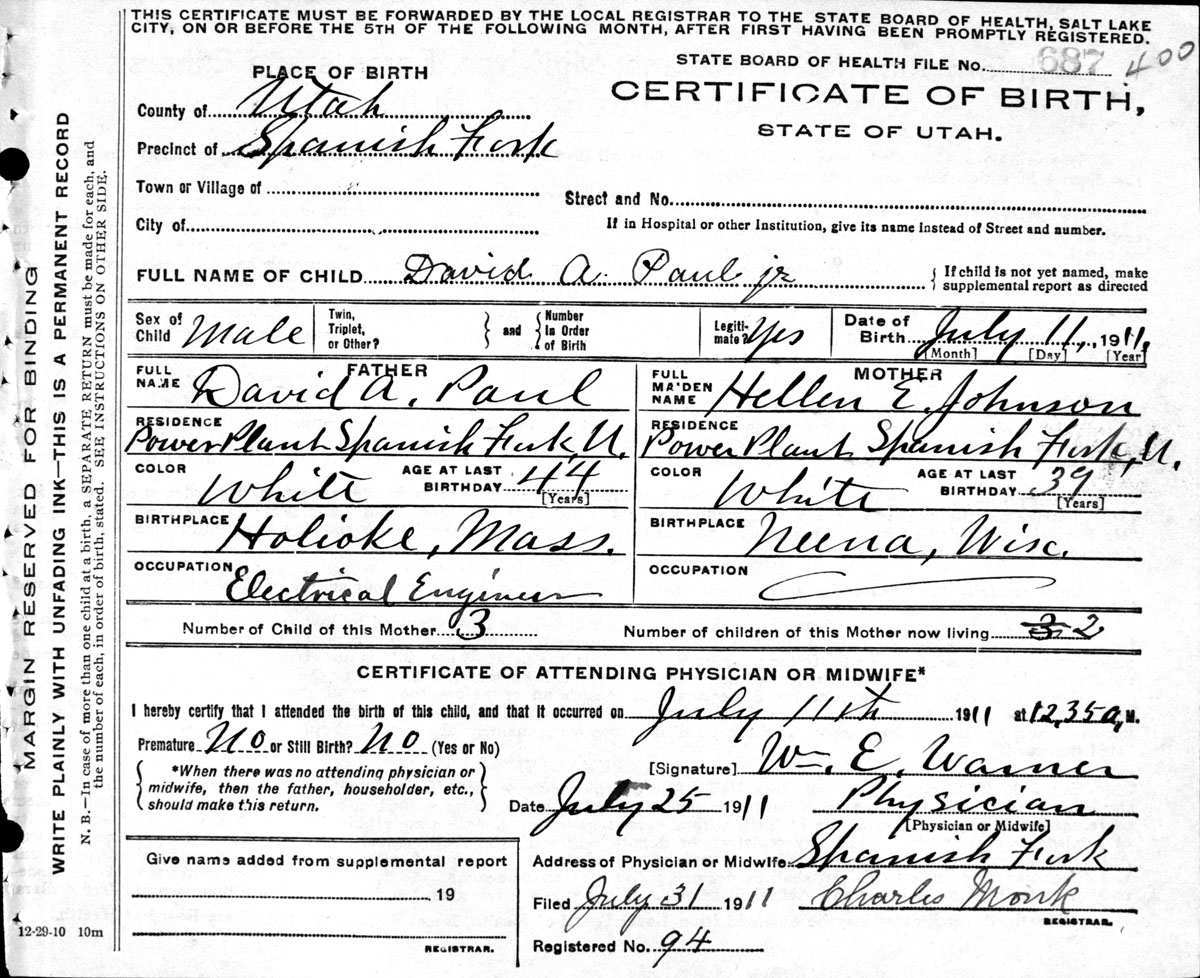 THIS CERTIFICATE MUST BE FORWARDED BY THE LOCAL REGISTRAR TO THE STATE BOARD OF HEALTH, SALT LAKE
CITY, ON OR BEFORE THE 5TH OF THE FOLLOWING MONTH, AFTER FIRST HAVING BEEN PROMPTLY REGISTERED.
STATE BOARD OF HEALTH FILE No. 687 400
CERTIFICATE OF BIRTH,
STATE OF UTAH.
PLACE OF BIRTH
County of Utah
Precinct of Spanish Fork
Town or Village of
Street and No.
City of
If in Hospital or other Institution, give its name instead of Street and number.
FULL NAME OF CHILD David A. Paul jr
{ If child is not yet named, make
supplemental report as directed
Sex of
Child Male
Twin,
Triplet,
or Other?
} and {
Number
in Order
of Birth
Legiti-
mate? Yes
Date of
Birth July 11, 1911,
[Month] [Day] [Year]
FATHER
FULL
NAME David A. Paul
RESIDENCE
Power Plant Spanish Fork, U.
COLOR White
AGE AT LAST
BIRTHDAY 44
[Years]
BIRTHPLACE Holioke, Mass.
OCCUPATION Electrical Engineer
MOTHER
FULL
MAIDEN
NAME Hellen E. Johnson
RESIDENCE
Power Plant Spanish Fork, U.
COLOR White
AGE AT LAST
BIRTHDAY 39
[Years]
BIRTHPLACE Neena, Wisc.
OCCUPATION
Number of Child of this Mother 3
Number of children of this Mother now living 3 2
CERTIFICATE OF ATTENDING PHYSICIAN OR MIDWIFE*
I hereby certify that I attended the birth of this child, and that it occurred on July 11th 1911 at 12,35 a, M.
Premature No or Still Birth? No (Yes or No)
{ *When there was no attending physician or
midwife, then the father, householder, etc.,
should make this return. }
[Signature] Wm. E. Warner
Date July 25 1911 Physician
[Physician or Midwife]
Give name added from supplemental report
19
REGISTRAR.
12-29-10 10m
Address of Physician or Midwife Spanish Fork
Filed July 31 1911 Charles Monk
REGISTRAR.
Registered No. 94
MARGIN RESERVED FOR BINDING
WRITE PLAINLY WITH UNFADING INK—THIS IS A PERMANENT RECORD
N. B.—In case of more than one child at a birth, a SEPARATE RETURN must be made for each, and
the number of each, in order of birth, stated. SEE INSTRUCTIONS ON OTHER SIDE.